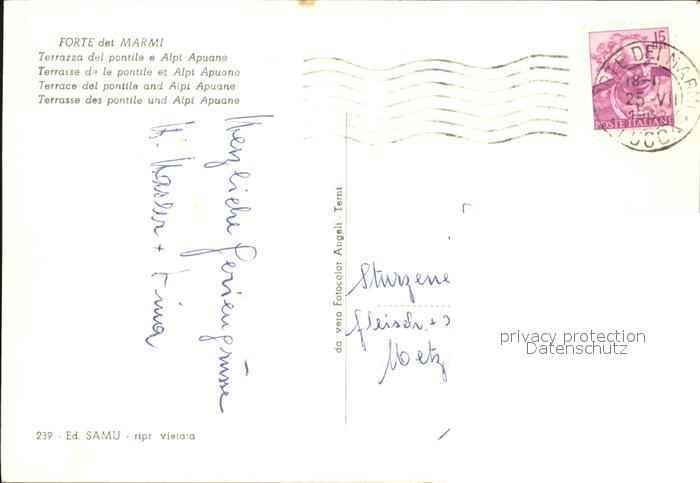 FORTE dei MARMI
Terrazza del pontile e Alpi Apuane
Terrasse de le pontile et Alpi Apuane
Terrace del pontile and Alpi Apuane
Terrasse des pontile und Alpi Apuane
Herzliche Feriengrüsse
+
da vero Fotocolor Angeli - Terni
15
POSTE ITALIANE
FORTE DEI MARMI
LUCCA
Sturzene
fleisch +
Metz
privacy protection
Datenschutz
239 - Ed. SAMU - ripr vietata